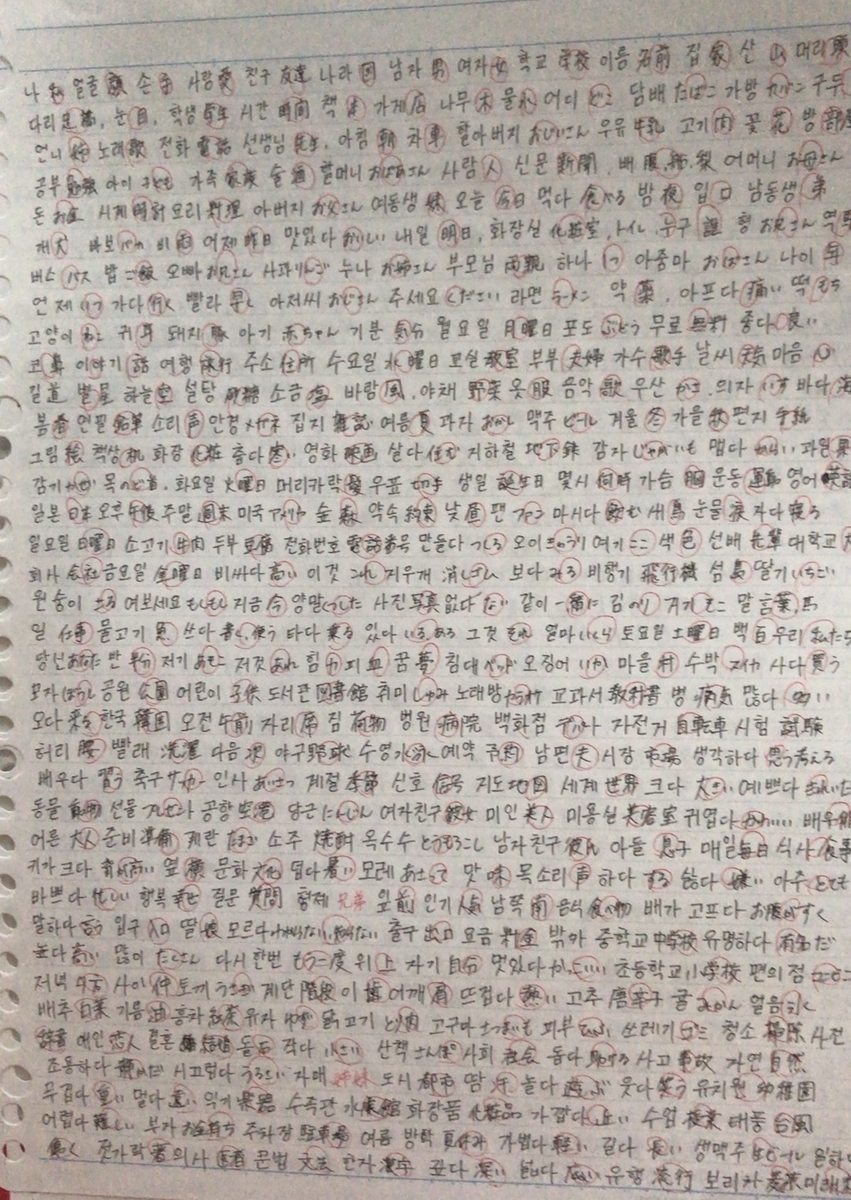 나 私 얼굴 顔 손 手 사랑 愛 친구 友達 나라 国 남자 男 여자 女 학교 学校 이름 名前 집 家 산 山 머리 頭
다리 足 눈 目, 학생 学生 시간 時間 책 本 가게 店 나무 木 물 水 어디 どこ 담배 たばこ 가방 かばん 구두
언니 姉 노래 歌 전화 電話 선생님 先生, 아침 朝 차 車 할아버지 おじいさん 우유 牛乳 고기 肉 꽃 花 방 部屋
공부 勉強 아이 子ども 가족 家族 술 酒 할머니 おばあさん 사람 人 신문 新聞, 배 腹, 船, 梨 어머니 お母さん
돈 お金 시계 時計 요리 料理 아버지 お父さん 여동생 妹 오늘 今日 먹다 食べる 밤 夜 입 口 남동생 弟
개 犬 바보 バカ 비 雨 어제 昨日 맛있다 おいしい 내일 明日, 화장실 化粧室, トイレ, 누구 誰 형 お兄さん 역 駅
버스 バス 밥 ご飯 오빠 お兄さん 사과 りんご 누나 お姉さん 부모님 両親 하나 1つ 아줌마 おばさん 나이 年
언제 いつ 가다 行く 빨라 早く 아저씨 おじさん 주세요 ください 라면 ラーメン 약 薬, 아프다 痛い 떡 もち
고양이 ねこ 귀 耳 돼지 豚 아기 赤ちゃん 기분 気分 월요일 月曜日 포도 ぶどう 무료 無料 좋다 良い
코 鼻 이야기 話 여행 旅行 주소 住所 수요일 水曜日 교실 教室 부부 夫婦 가수 歌手 날씨 天気 마음 心
길 道 별 星 하늘 空 설탕 砂糖 소금 塩 바람 風, 야채 野菜 옷 服 음악 歌 우산 かさ, 의자 いす 바다 海
봄 春 연필 鉛筆 소리 声 안경 メガネ 잡지 雑誌 여름 夏 과자 おかし 맥주 ビール 겨울 冬 가을 秋 편지 手紙
그림 絵 책상 机 화장 化粧 춥다 寒い 영화 映画 살다 住む 지하철 地下鉄 감자 じゃがいも 맵다 からい 과일 果
감기 かぜ 목 のど, 首, 화요일 火曜日 머리카락 髪 우표 切手 생일 誕生日 몇시 何時 가슴 胸 운동 運動 영어 英語
일본 日本 오후 午後 주말 週末 미국 アメリカ 숲 森 약속 約束 낮 昼 팬 ファン 마시다 飲む 새 鳥 눈물 涙 자다 寝る
일요일 日曜日 소고기 牛肉 두부 豆腐 전화번호 電話番号 만들다 つくる 오이 きゅうり 여기 ここ 색 色 선배 先輩 대학교
회사 会社 금요일 金曜日 비싸다 高い 이것 これ 지우개 消しゴム 보다 みる 비행기 飛行機 섬 島 딸기 いちご
원숭이 さる 여보세요 もしもし 지금 今 양말 くつした 사진 写真 없다 ない 같이 一緒に 김 のり 거기 そこ 말 言葉, 馬
일 仕事 물고기 魚 쓰다 書く, 使う 타다 乗る 있다 いる, ある 그것 それ 얼마 いくら 토요일 土曜日 백 百 우리 私たち
당신 あなた 반 半分 저기 あそこ 저것 あれ 힘 力 피 血 꿈 夢 침대 ベッド 오징어 いか 마을 村 수박 スイカ 사다 買う
모자 ぼうし 공원 公園 어린이 子供 도서관 図書館 취미 しゅみ 노래방 カラオケ 교과서 教科書 병 病気 많다 多い
오다 来る 한국 韓国 오전 午前 자리 席 짐 荷物 병원 病院 백화점 デパート 자전거 自転車 시험 試験
허리 腰 빨래 洗濯 다음 次 야구 野球 수영 水泳 예약 予約 남편 夫 시장 市場 생각하다 思う 考える
배우다 習う 축구 サッカー 인사 あいさつ 계절 季節 신호 信号 지도 地図 세계 世界 크다 大きい 예쁘다 きれいだ
동물 動物 선물 プレゼント 공항 空港 당근 にんじん 여자친구 彼女 미인 美人 미용실 美容室 귀엽다 かわいい 배우
어른 大人 준비 準備 계란 たまご 소주 焼酎 옥수수 とうもろこし 남자친구 彼氏 아들 息子 매일 毎日 식사 食事
키가 크다 背が高い 옆 横 문화 文化 덥다 暑い 모레 あさって 맛 味 목소리 声 하다 する 싫다 嫌い 아주 とても
바쁘다 忙しい 행복 幸せ 질문 質問 형제 兄弟 앞 前 인기 人気 남쪽 南 음식 食べ物 배가 고프다 お腹がすく
말하다 言う 입구 入口 딸 娘 모르다 わからない, 知らない 출구 出口 요금 料金 밖 外 중학교 中学校 유명하다 有名だ
높다 高い 많이 たくさん 다시 한번 もう一度 위 上 자기 自分 멋있다 かっこいい 초등학교 小学校 편의점
저녁 夕方 사이 仲 토끼 うさぎ 계단 階段 이 歯 어깨 肩 뜨겁다 熱い 고추 唐辛子 귤 みかん 얼음 氷
배추 白菜 기름 油 홍차 紅茶 유자 ゆず 닭고기 とり肉 고구마 さつまいも 피부 ひふ 쓰레기 ゴミ 청소 掃除 사전
辞書 애인 恋人 결혼 結婚 돌 石 작다 小さい 산책 さんぽ 사회 社会 돕다 助ける 사고 事故 자연 自然
조용하다 静かだ 시끄럽다 うるさい 자매 姉妹 도시 都市 땀 汗 놀다 遊ぶ 웃다 笑う 유치원 幼稚園
무겁다 重い 멀다 遠い 악기 楽器 수족관 水族館 화장품 化粧品 가깝다 近い 수업 授業 태풍 台風
어렵다 難しい 부자 お金持ち 주차장 駐車場 여름 방학 夏休み 가볍다 軽い 길다 長い 생맥주 生ビール 일하다
働く 젓가락 箸 의사 医者 문법 文法 한자 漢字 깊다 深い 넓다 広い 유행 流行 보리차 麦茶 미래